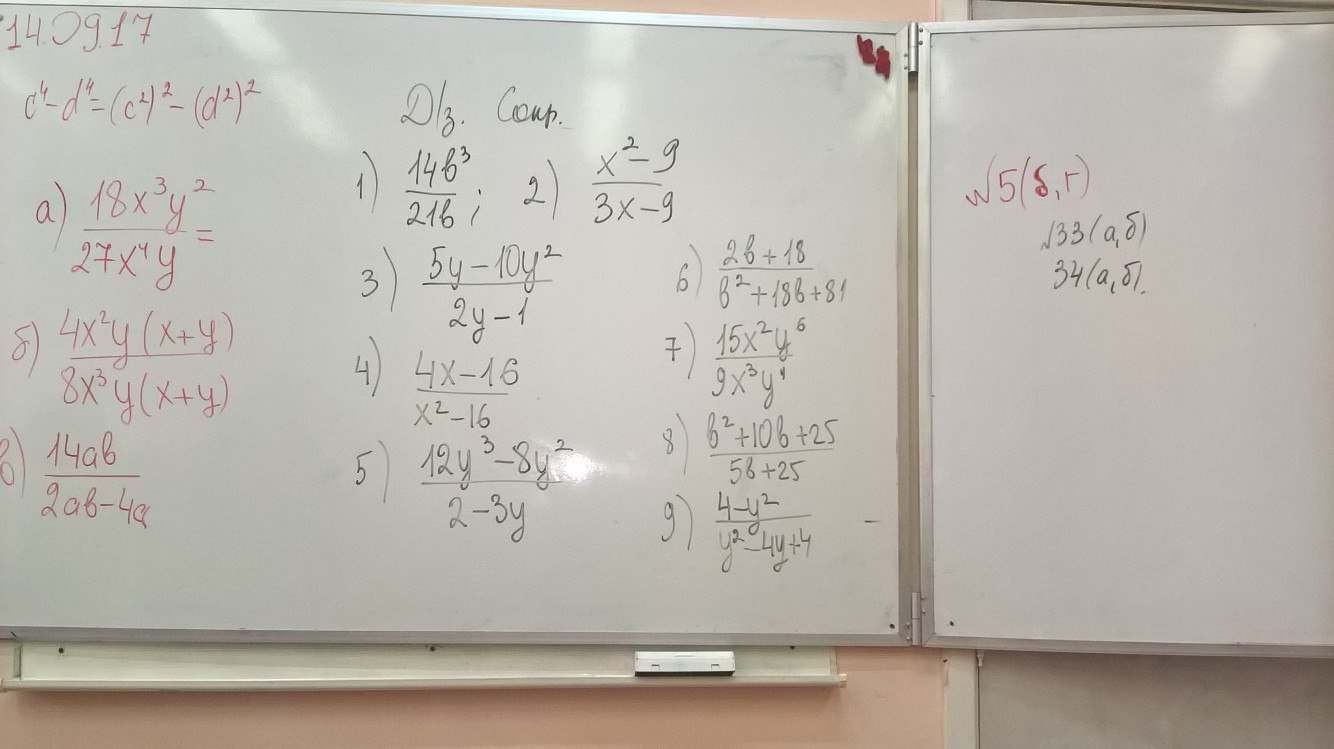 14.09.17
c⁴-d⁴=(c²)²-(d²)²
а) 18x³y² / 27x⁴y =
б) 4x²y(x+y) / 8x³y(x+y)
в) 14ab / 2ab-4a
D/з. Сокр.
1) 14b³ / 21b ; 2) x²-9 / 3x-9
3) 5y-10y² / 2y-1
4) 4x-16 / x²-16
5) 12y³-8y² / 2-3y
6) 2b+18 / b²+18b+81
7) 15x²y⁶ / 9x³y⁴
8) b²+10b+25 / 5b+25
9) 4-y² / y²-4y+4
№5(б,г)
№33(а,б)
34(а,б).